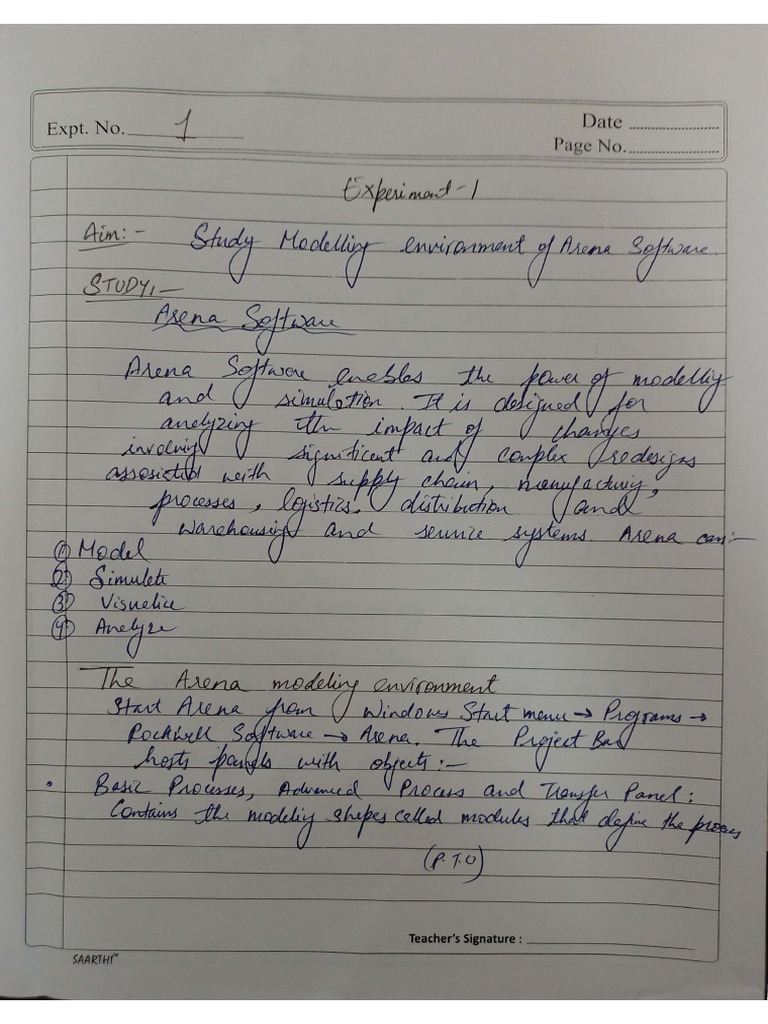 Expt. No. 1
Date
Page No.
Experiment-1
Aim:- Study Modelling environment of Arena Software.
STUDY:-
Arena Software
Arena Software enables the power of modelling
and simulation. It is designed for
analyzing the impact of changes
involving significant and complex redesigns
assosicted with supply chain, manufacturing,
processes, logistics, distribution and
warehousing and service systems. Arena can:-
① Model
② Simulate
③ Visualize
④ Analyze
The Arena modeling environment
Start Arena from Windows Start menu → Programs →
Rockwell Software → Arena. The Project Bar
hosts panels with objects:-
• Basic Processes, Advanced Process and Transfer Panel:
Contains the modeling shapes called modules that define the process
(P.T.O)
Teacher's Signature :
SAARTHI™